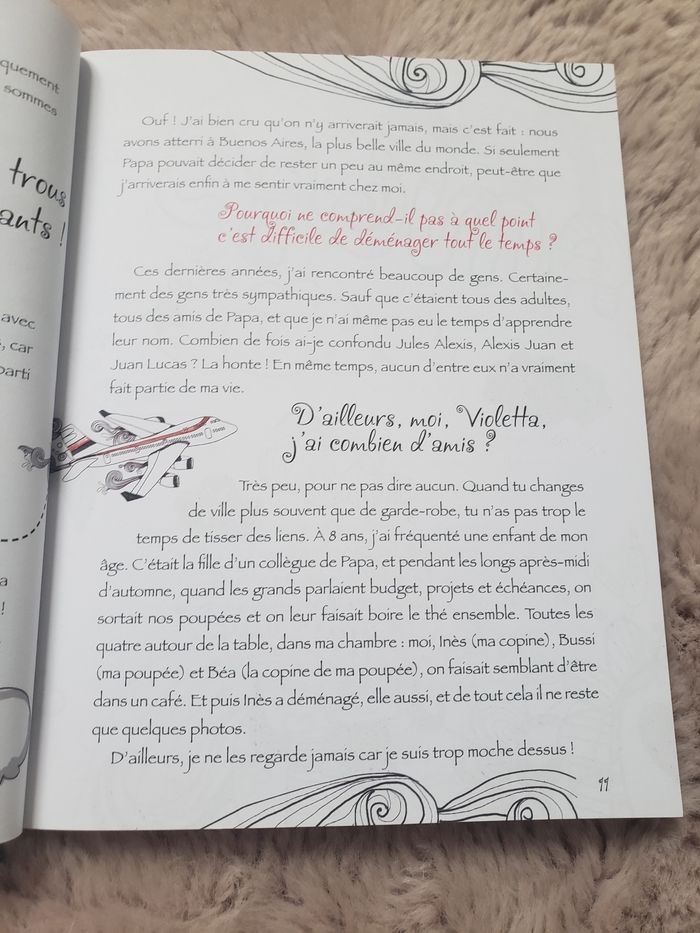 quement
sommes
trous
ants !
avec
, car
parti
a
!
Ouf ! J'ai bien cru qu'on n'y arriverait jamais, mais c'est fait : nous
avons atterri à Buenos Aires, la plus belle ville du monde. Si seulement
Papa pouvait décider de rester un peu au même endroit, peut-être que
j'arriverais enfin à me sentir vraiment chez moi.
Pourquoi ne comprend-il pas à quel point
c'est difficile de déménager tout le temps ?
Ces dernières années, j'ai rencontré beaucoup de gens. Certaine-
ment des gens très sympathiques. Sauf que c'étaient tous des adultes,
tous des amis de Papa, et que je n'ai même pas eu le temps d'apprendre
leur nom. Combien de fois ai-je confondu Jules Alexis, Alexis Juan et
Juan Lucas ? La honte ! En même temps, aucun d'entre eux n'a vraiment
fait partie de ma vie.
D'ailleurs, moi, Violetta,
j'ai combien d'amis ?
Très peu, pour ne pas dire aucun. Quand tu changes
de ville plus souvent que de garde-robe, tu n'as pas trop le
temps de tisser des liens. À 8 ans, j'ai fréquenté une enfant de mon
âge. C'était la fille d'un collègue de Papa, et pendant les longs après-midi
d'automne, quand les grands parlaient budget, projets et échéances, on
sortait nos poupées et on leur faisait boire le thé ensemble. Toutes les
quatre autour de la table, dans ma chambre : moi, Inès (ma copine), Bussi
(ma poupée) et Béa (la copine de ma poupée), on faisait semblant d'être
dans un café. Et puis Inès a déménagé, elle aussi, et de tout cela il ne reste
que quelques photos.
D'ailleurs, je ne les regarde jamais car je suis trop moche dessus !
11